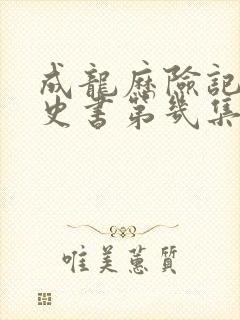 成龍歷險記
史書第幾集
唯美蕙質